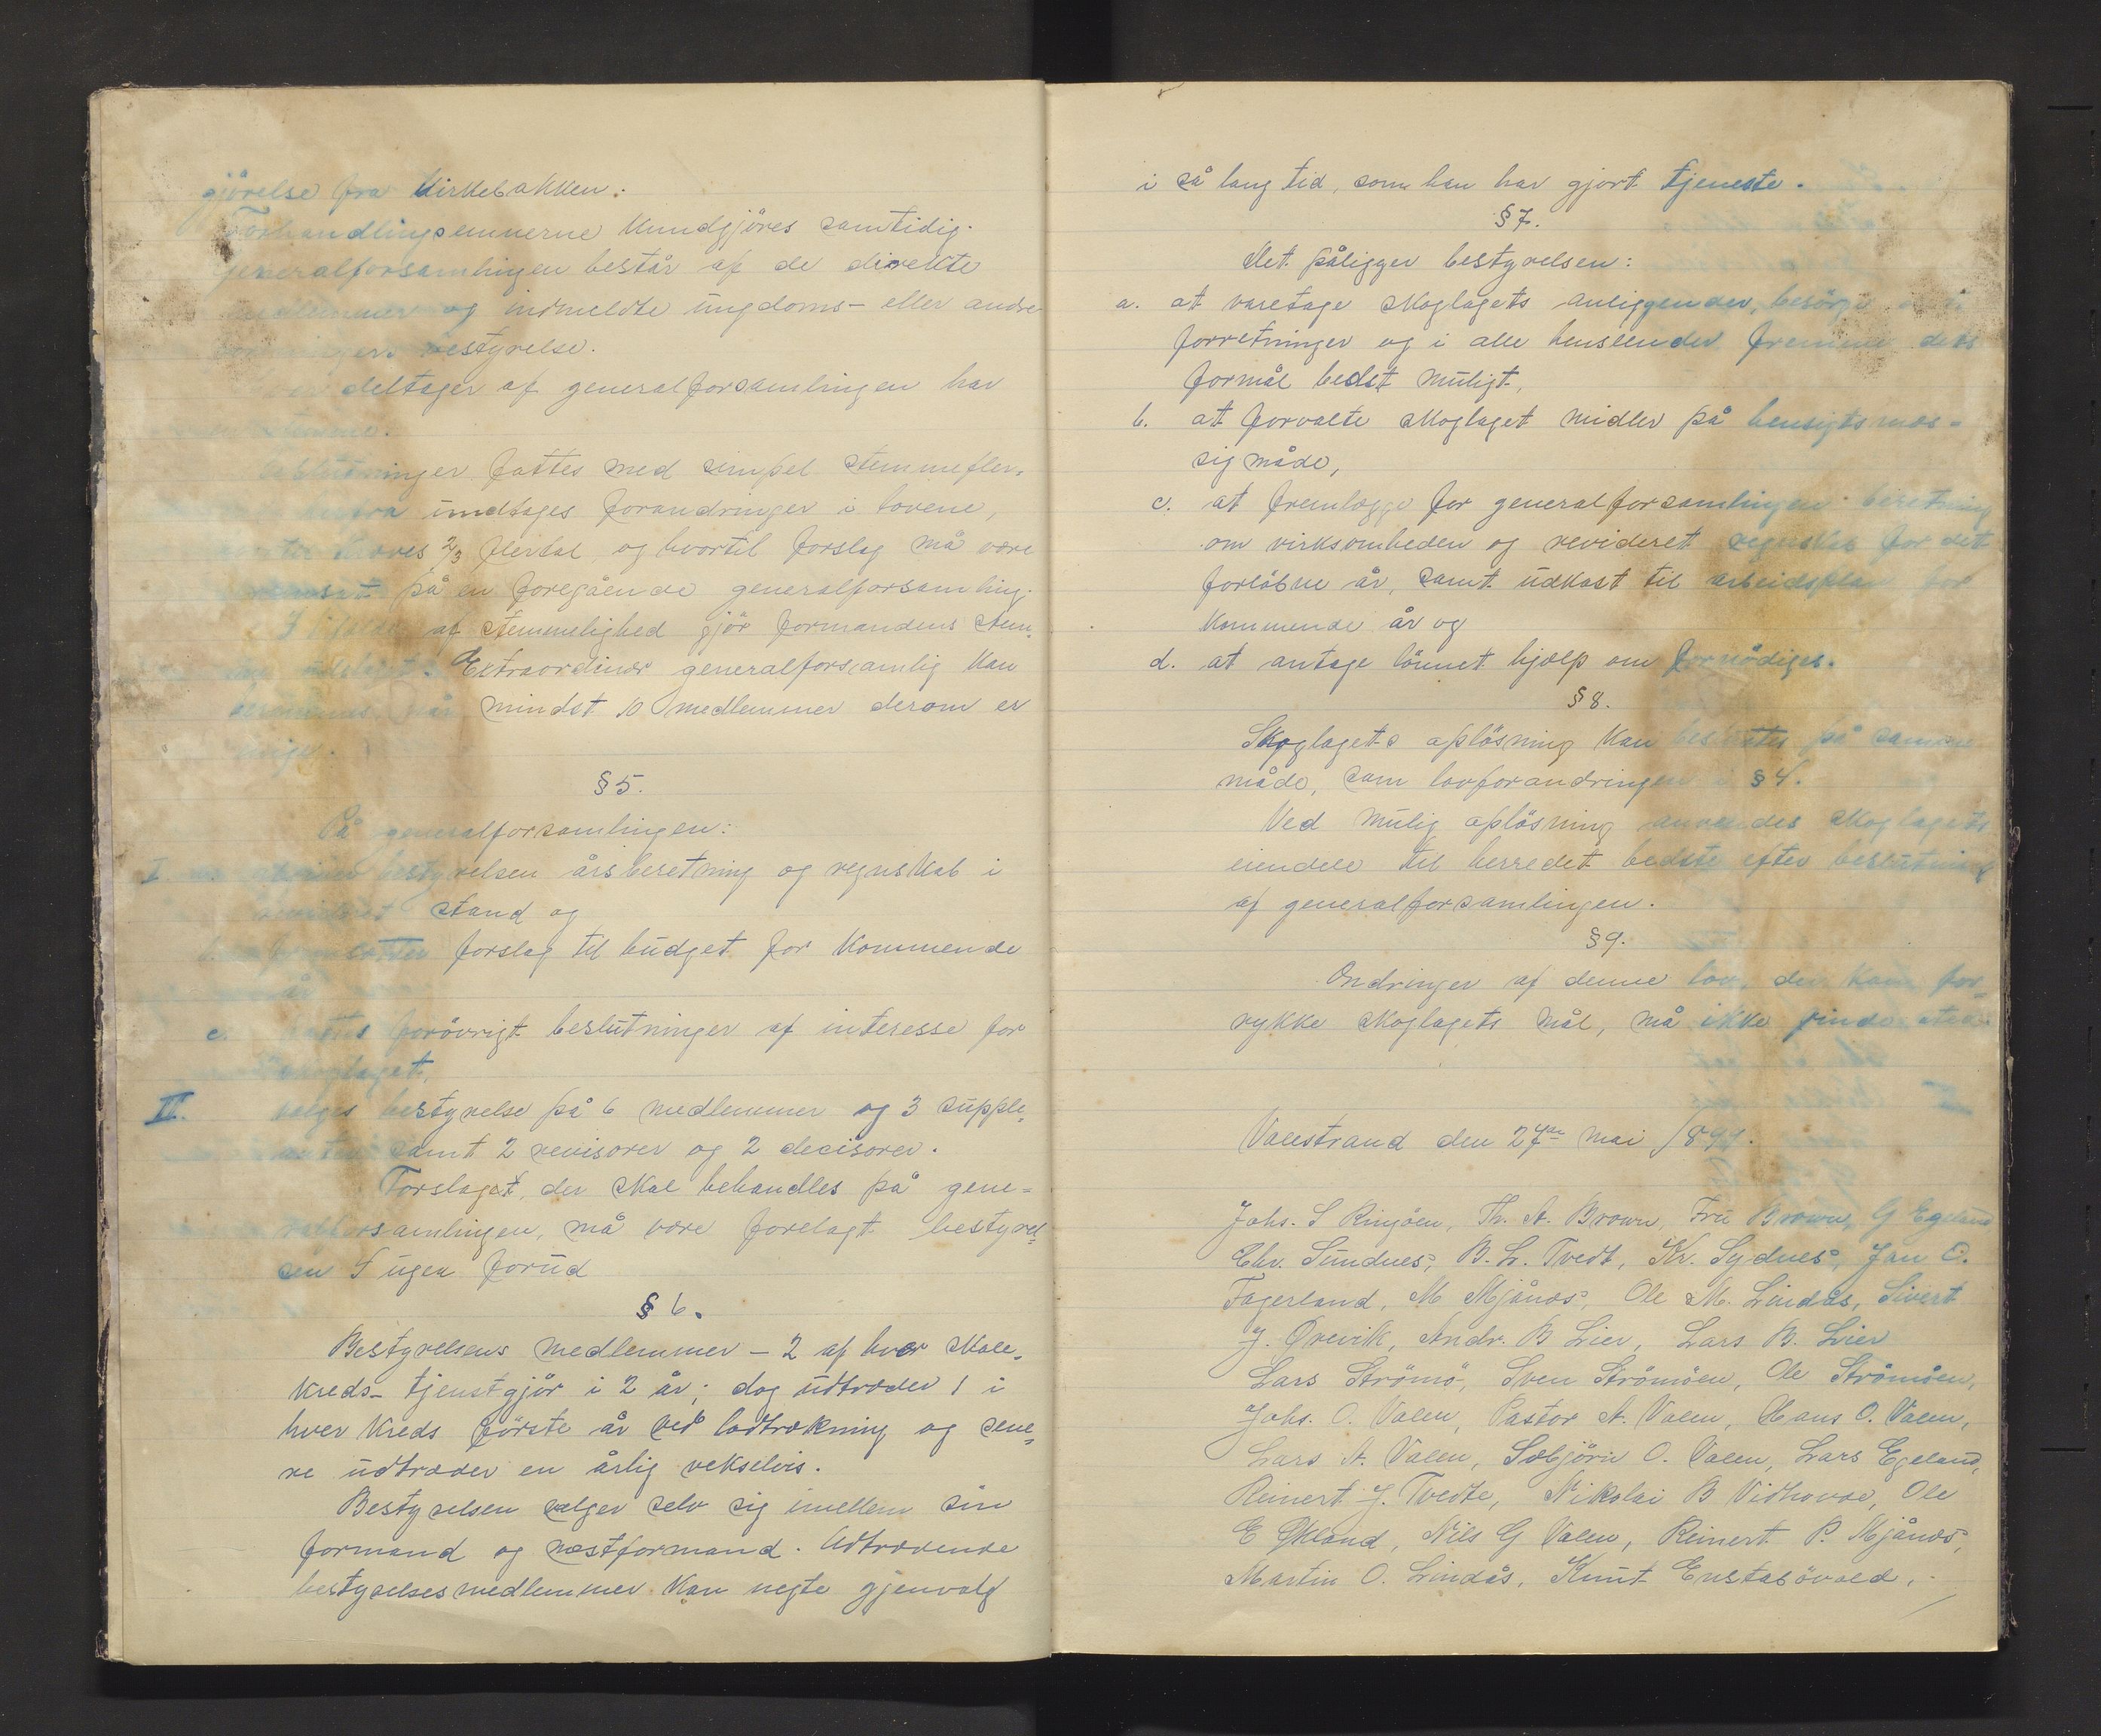 gjörelse fra Kirkebakken.
Forhandlingsemnerne kundgjöres samtidig.
Generalforsamlingen består af de direkte
medlemmer og indmeldte ungdoms- eller andre
bestyrelse.
deltager af generalforsamlingen har
stemme.
Beslutninger fattes med simpel stemmefler-
herfra undtages forandringer i lovene,
kræves 2/3 flertal og hvortil forslag må være
på en foregående generalforsamling.
I tilfælde af stemmelighed gjör formandens stem-
me udslaget. Extraordinær generalforsamlig kan
når mindst 10 medlemmer derom er
enige.
§ 5.
På generalforsamlingen:
I. bestyrelsen årsberetning og regnskab i
revideret stand og
forslag til budget for kommende
år
c. fattes forövrigt beslutninger af interesse for
skoglaget.
II. vælges bestyrelse på 6 medlemmer og 3 supple-
anter samt 2 revisorer og 2 decisorer.
Forslaget, der skal behandles på gene=
ralforsamlingen, må være forelagt bestyrel=
sen uger forud
§ 6.
Bestyrelsens medlemmer – 2 af hver skole-
kreds – tjenstgjör i 2 år; dog udtræder 1 i
hver kreds förste år ved lodtrækning og sene=
re udtræder en årlig vekselvis.
Bestyrelsen vælger selv sig imellem sin
formand og næstformand. Udtrædende
bestyrelsesmedlemmer kan negte gjenvalg
i så lang tid, som han har gjort tjeneste.
§ 7.
Det påligger bestyrelsen:
a. at varetage skoglagets anliggender, besörge
forretninger og i alle henseender fremme dets
formål bedst muligt,
b. at forvalte skoglaget midler på hensigtsmæs=
sig måde,
c. at fremlægge for generalforsamlingen beretning
om virksomheden og revideret regnskab for det
forlöbne år, samt udkast til arbeidsplan for
kommende år og
d. at antage lönnet hjælp om fornödiges.
§ 8.
Skoglagets oplösning kan besluttes på samme
måde, som lovforandringer i § 4.
Ved mulig oplösning anvendes skoglagets
eiendele til herredet bedste efter beslutning
af generalforsamlingen.
§ 9.
Ændringer af denne lov, der kan for=
rykke skoglagets mål, må ikke finde sted.
Valestrand den 27de mai 1899.
Johs. S Ringöen, Th. A. Brown, Fru Brown, G Egeland
Chr. Sundnes, B. L. Tvedt, Kr. Sydnes, Jan E.
Fagerland, M Mjånæs, Ole M. Lindås, Sivert
J. Örevik, Andr. B Lier, Lars B. Lier
Lars Strömö, Sven Strömöen, Ole Strömöen,
Johs. O. Valen, Pastor A. Valen, Hans O. Valen,
Lars A. Valen, Sæbjörn O. Valen, Lars Egeland,
Reinert J. Tvedte, Nikolai B Vidhovde, Ole
E Økland, Nils G Valen, Reinert P. Mjånæs,
Martin O. Lindås, Knut